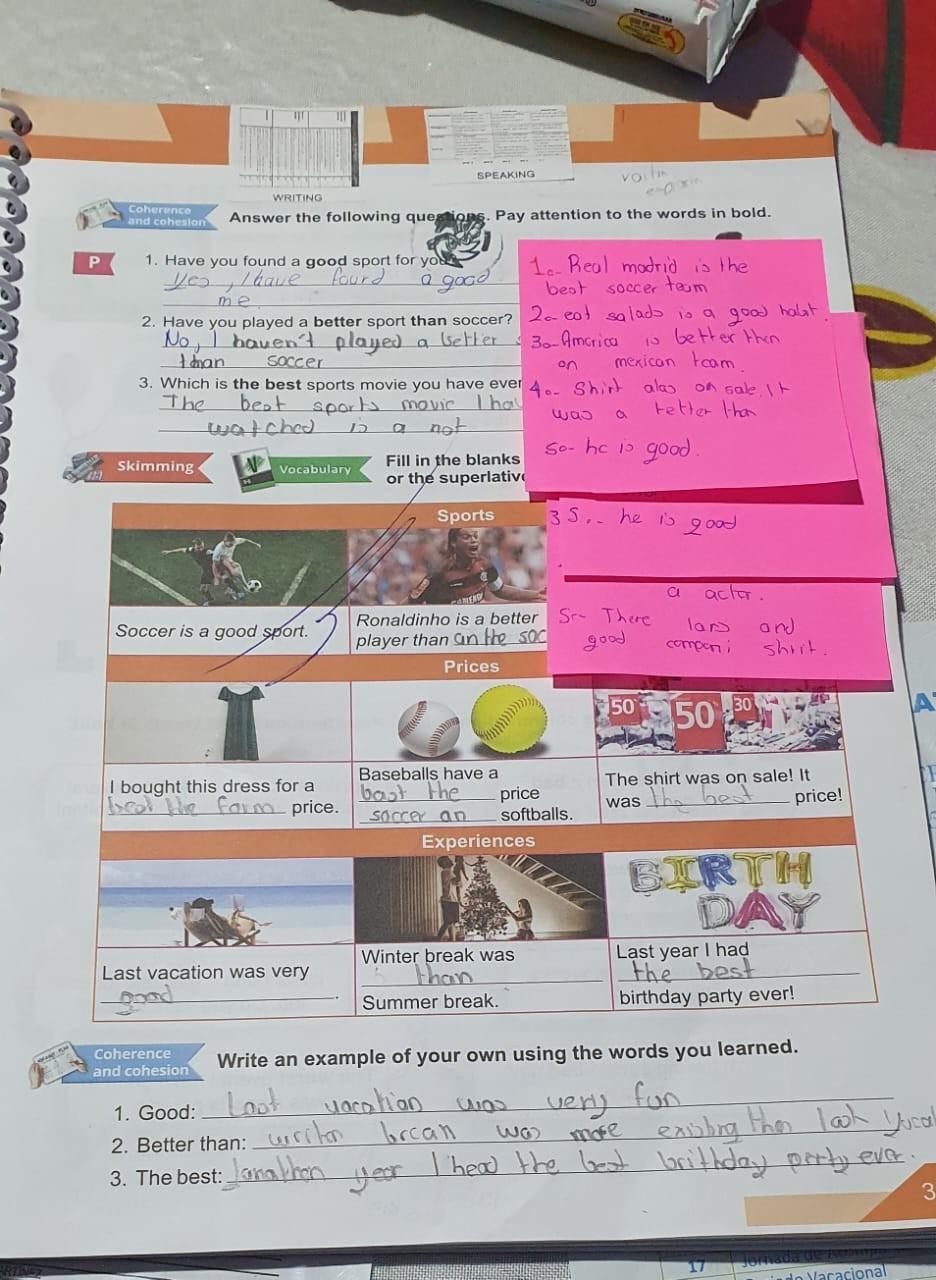 WRITING
SPEAKING
Coherence and cohesion
Answer the following questions. Pay attention to the words in bold.
P
1. Have you found a good sport for you
Yes, I have found a good
me
2. Have you played a better sport than soccer?
No, I haven't played a better
than soccer
3. Which is the best sports movie you have ever
The best sports movie I hav
watched is a not
1.- Real madrid is the
best soccer team
2.- eat salads is a good habit.
3.- America is better then
on mexican team.
4.- Shirt also on sale. It
was a tetter than
5.- he is good.
3 5.- he is good
a actor.
5.- There lars and
good componi shirt.
Skimming
Vocabulary
Fill in the blanks
or the superlative
Sports
Soccer is a good sport.
Ronaldinho is a better
player than an the soc
Prices
50
50
30
I bought this dress for a
beat the farm price.
Baseballs have a
bast the price
soccer an softballs.
The shirt was on sale! It
was the best price!
Experiences
BIRTH
DAY
Last vacation was very
good.
Winter break was
than
Summer break.
Last year I had
the best
birthday party ever!
Coherence and cohesion
Write an example of your own using the words you learned.
1. Good: Last vacation was very fun
2. Better than: writen brcan was more existing then look
3. The best: Jonathon year I head the best brithday perty ever.
3
17
Vacacional